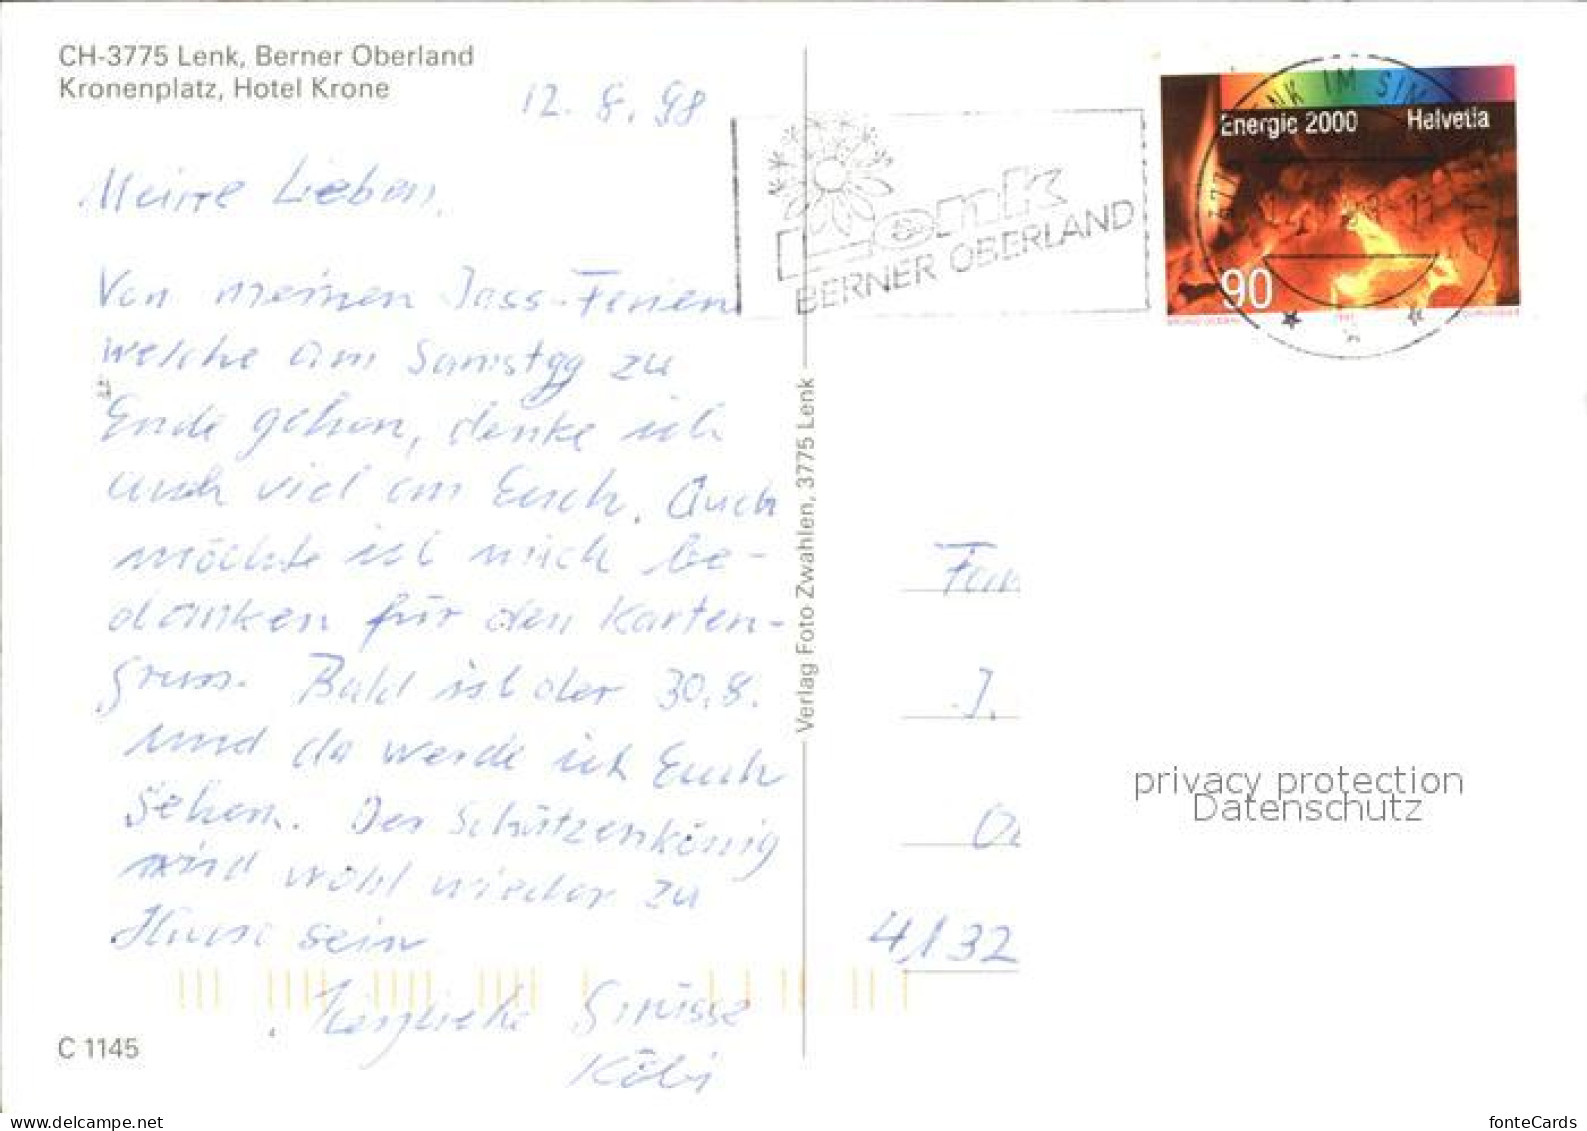 CH-3775 Lenk, Berner Oberland
Kronenplatz, Hotel Krone
12. 8. 98
Meine Lieben,
Von meinen Jass-Ferien
welche am Samstag zu
Ende gehen, denke ich
auch viel an Euch. Auch
möchte ich mich be-
danken für den Karten-
gruss. Bald ist der 30.8.
und da werde ich Euch
sehen. Der Schützenkönig
wird wohl wieder zu
Hause sein
Herzliche Grüsse
Köbi
C 1145
Verlag Foto Zwahlen, 3775 Lenk
Lenk
BERNER OBERLAND
Energie 2000 Helvetia
90
Fam
J.
4132
privacy protection
Datenschutz
fonteCards